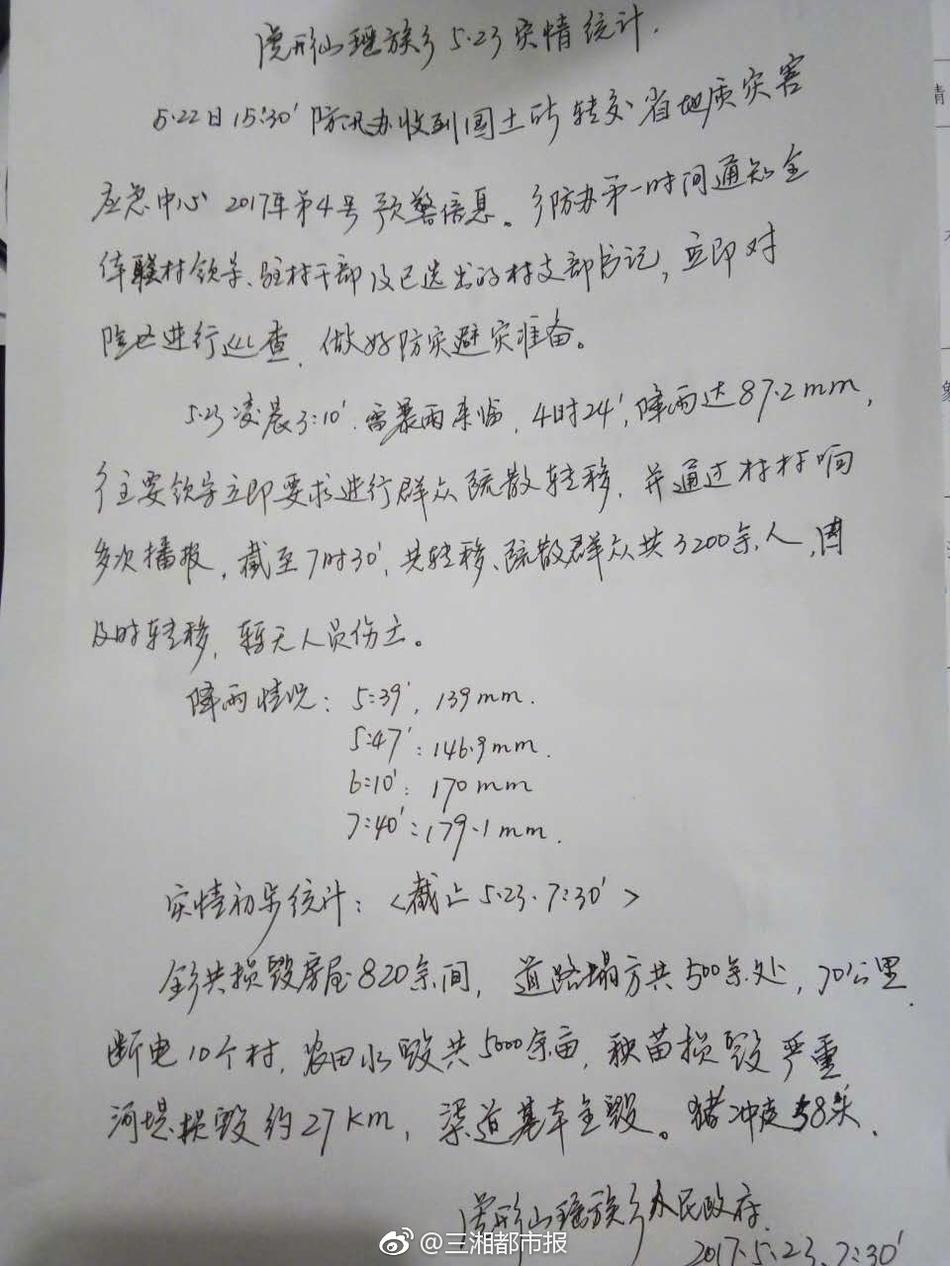 虎形山瑶族乡5.23灾情统计.
5.22日15:30'防汛办收到国土所转交省地质灾害
应急中心2017年第4号预警信息。乡防办第一时间通知全
体联村领导、驻村干部及已选出的村支部书记,立即对
险区进行巡查,做好防灾避灾准备。
5.23凌晨3:10'.雷暴雨来临,4时24',降雨达87.2mm,
乡主要领导立即要求进行群众疏散转移,并通过村村响
多次播报,截至7时30',共转移、疏散群众共3200余人,因
及时转移,暂无人员伤亡。
降雨情况:5:39',139mm.
5:47':146.9mm.
6:10':170mm
7:40':179.1mm.
灾情初步统计:<截止5.23.7:30'>
全乡共损毁房屋820余间,道路塌方共500余处,70公里,
断电10个村,农田水毁共5000余亩,秧苗损毁严重
河堤损毁约27Km,渠道基本全毁。猪冲走58头.
虎形山瑶族乡人民政府.
2017.5.23.7:30'
@三湘都市报
情